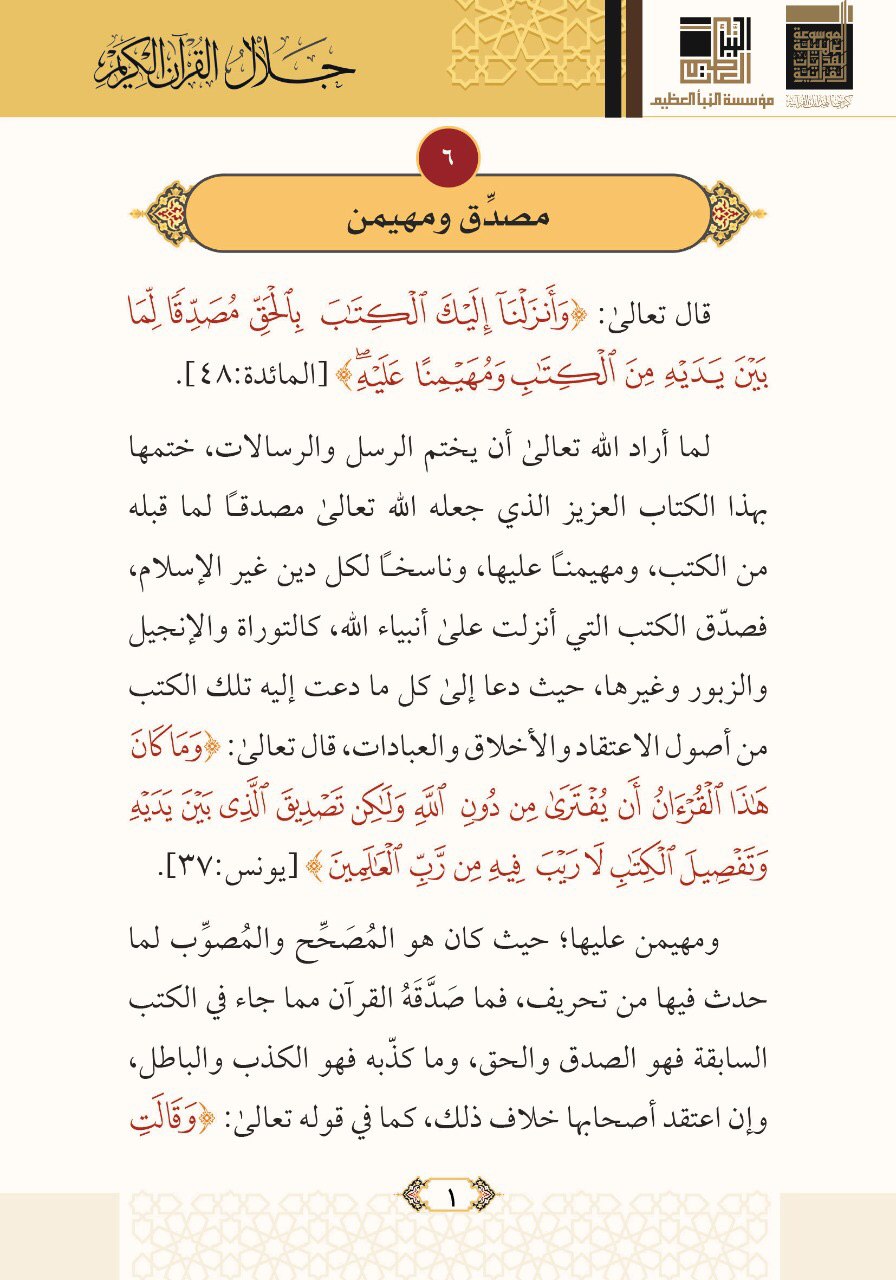 جلال القرآن الكريم
النبأ العظيم
مؤسسة النبأ العظيم
٦
مصدِّق ومهيمن
قال تعالىٰ: ﴿وَأَنزَلۡنَآ إِلَيۡكَ ٱلۡكِتَٰبَ بِٱلۡحَقِّ مُصَدِّقٗا لِّمَا
بَيۡنَ يَدَيۡهِ مِنَ ٱلۡكِتَٰبِ وَمُهَيۡمِنًا عَلَيۡهِۖ﴾ [المائدة:٤٨].
لما أراد الله تعالىٰ أن يختم الرسل والرسالات، ختمها
بهذا الكتاب العزيز الذي جعله الله تعالىٰ مصدقـًا لما قبله
من الكتب، ومهيمنـًا عليها، وناسخـًا لكل دين غير الإسلام،
فصدّق الكتب التي أنزلت علىٰ أنبياء الله، كالتوراة والإنجيل
والزبور وغيرها، حيث دعا إلىٰ كل ما دعت إليه تلك الكتب
من أصول الاعتقاد والأخلاق والعبادات، قال تعالىٰ: ﴿وَمَا كَانَ
هَٰذَا ٱلۡقُرۡءَانُ أَن يُفۡتَرَىٰ مِن دُونِ ٱللَّهِ وَلَٰكِن تَصۡدِيقَ ٱلَّذِي بَيۡنَ يَدَيۡهِ
وَتَفۡصِيلَ ٱلۡكِتَٰبِ لَا رَيۡبَ فِيهِ مِن رَّبِّ ٱلۡعَٰلَمِينَ﴾ [يونس:٣٧].
ومهيمن عليها؛ حيث كان هو المُصَحِّح والمُصوِّب لما
حدث فيها من تحريف، فما صَدَّقَهُ القرآن مما جاء في الكتب
السابقة فهو الصدق والحق، وما كذّبه فهو الكذب والباطل،
وإن اعتقد أصحابها خلاف ذلك، كما في قوله تعالىٰ: ﴿وَقَالَتِ
١